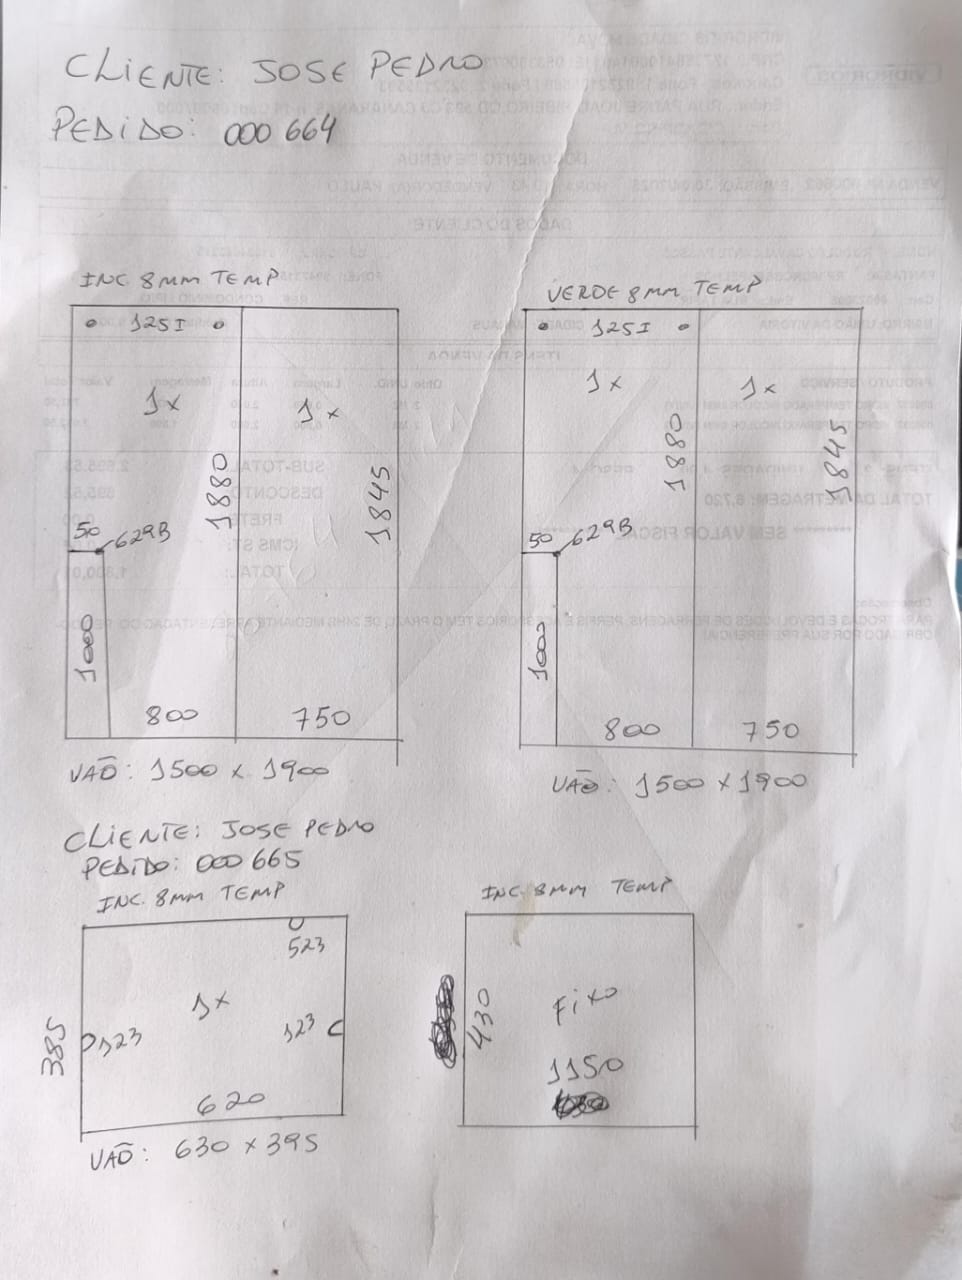 CLIENTE: JOSE PEDRO
PEDIDO: 000 664
INC 8MM TEMP
125I
1x
1x
1880
1845
50
629B
1000
800
750
VAÕ: 1500 x 1900
VERDE 8MM TEMP
125I
1x
1x
1880
1845
50
629B
1000
800
750
VAÕ: 1500 x 1900
CLIENTE: JOSE PEDRO
PEDIDO: 000 665
INC. 8MM TEMP
523
1x
385
123
123
620
VAÕ: 630 x 395
INC. 8MM TEMP
430
Fixo
1150